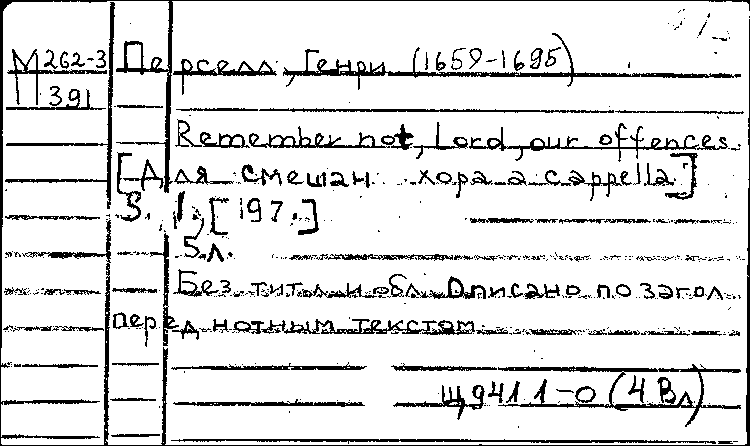 М262-3 Перселл, Генри (1659-1695)
П391
Remember not, Lord, our offences
[Для смешан. хора a cappella]
S. l., [197.]
5 л.
Без тит. л и обл. Описано по загол.
перед нотным текстом
Щ9411-0 (4Вл)